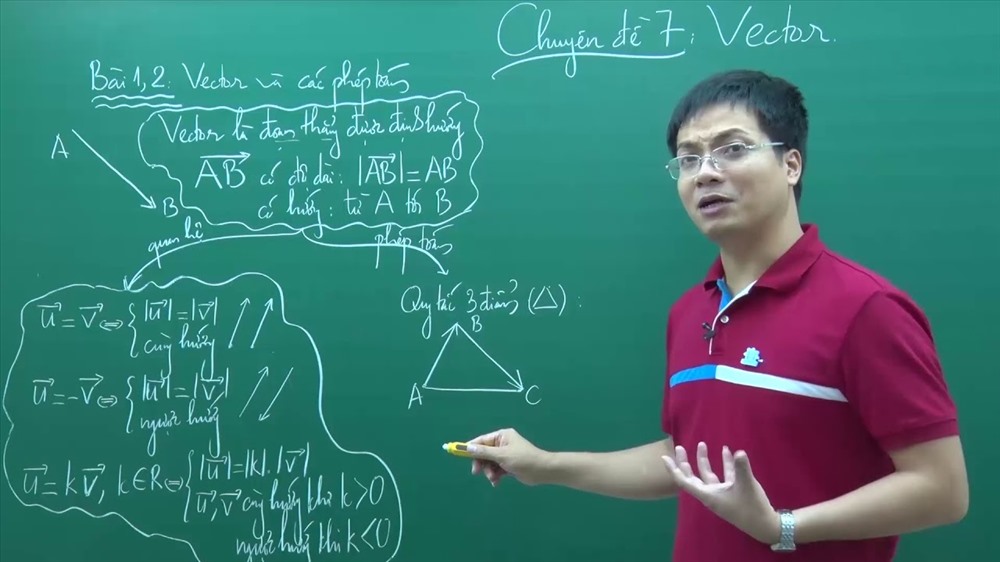 Chuyên đề 7: Vector.
Bài 1, 2: Vector và các phép toán
Vector là đoạn thẳng được định hướng
A
AB→ có độ dài: |AB→| = AB
B
có hướng: từ A tới B
quan hệ
phép toán
Quy tắc 3 điểm (△):
B
A C
u→ = v→ ⇔ { |u→| = |v→|
cùng hướng
u→ = -v→ ⇔ { |u→| = |v→|
ngược hướng
u→ = kv→, k∈R ⇔ { |u→| = |k|.|v→|
u→, v→ cùng hướng khi k > 0
ngược hướng khi k < 0